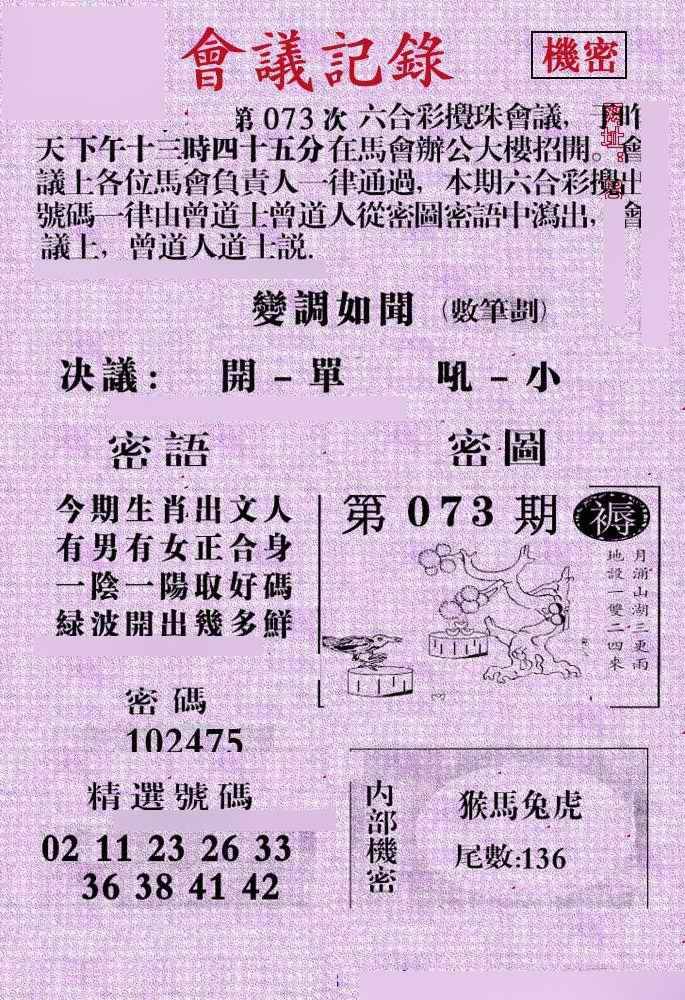 會議記錄
機密
第 073 次 六合彩攪珠會議，于昨
天下午十三時四十五分在馬會辦公大樓招開。會
議上各位馬會負責人一律通過，本期六合彩攪出
號碼一律由曾道士曾道人從密圖密語中瀉出，會
議上，曾道人道士説.
變調如聞（數筆劃）
决議： 開－單 吼－小
密語
密圖
今期生肖出文人
有男有女正合身
一陰一陽取好碼
緑波開出幾多鮮
第073期
褥
月涌山湖三更雨
地設一雙二四來
密碼
102475
精選號碼
02 11 23 26 33
36 38 41 42
内部機密
猴馬兔虎
尾數:136